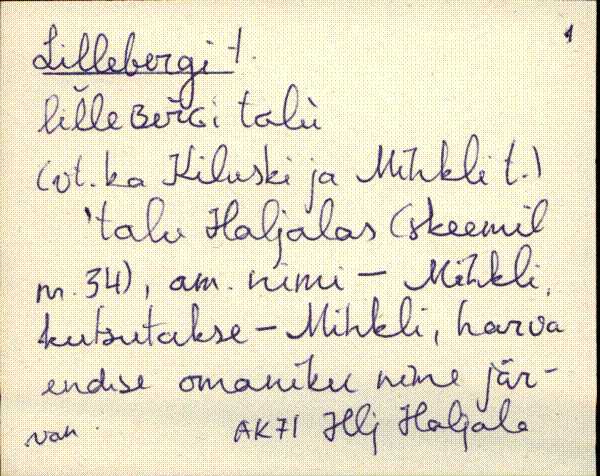 1
Lillebergi t.
lilleBerGi talù
(vt. ka Kiluski ja Mihkli t.)
'talu Haljalas (skeemil
nr. 34), am. nimi – Mihkli,
kutsutakse – Mihkli, harva
endise omaniku nime jär-
van AK71 Hlj Haljala